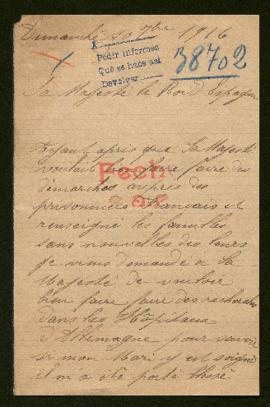 Dimanche 10 Xbre 1916
Pedir informes
Que se hace así
Devolver
38702
Sa Majesté le Roi d'Espagne
Ayant apris que Sa Majesté
voulait bien faire faire des
démarches auprès des
Fech
prisonniers Français et
renseigné les familles
sans nouvelles des leurs
je viens demandé a Sa
Majesté de vouloir
bien faire faire des recherches
dans les Hôpitaux
d'Allemagne pour savoir
si mon Mari y est soigné
il m'a été porté